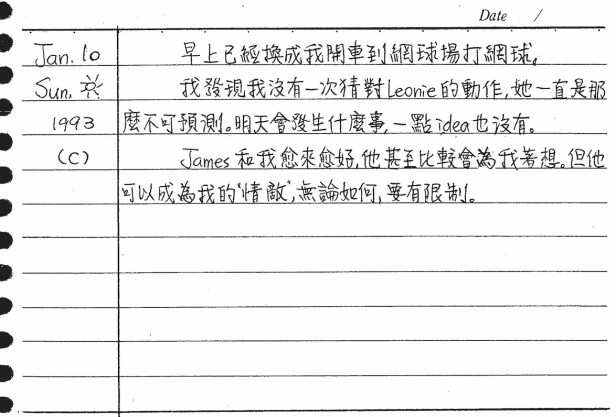 Date /
Jan. 10 早上已經換成我開車到網球場打網球。
Sun. 我發現我沒有一次猜對Leonie的動作,她一直是那
1993 麼不可預測。明天會發生什麼事,一點idea也沒有。
(C) James 和我愈來愈好,他甚至比較會為我著想。但他
可以成為我的"情敵",無論如何,要有限制。